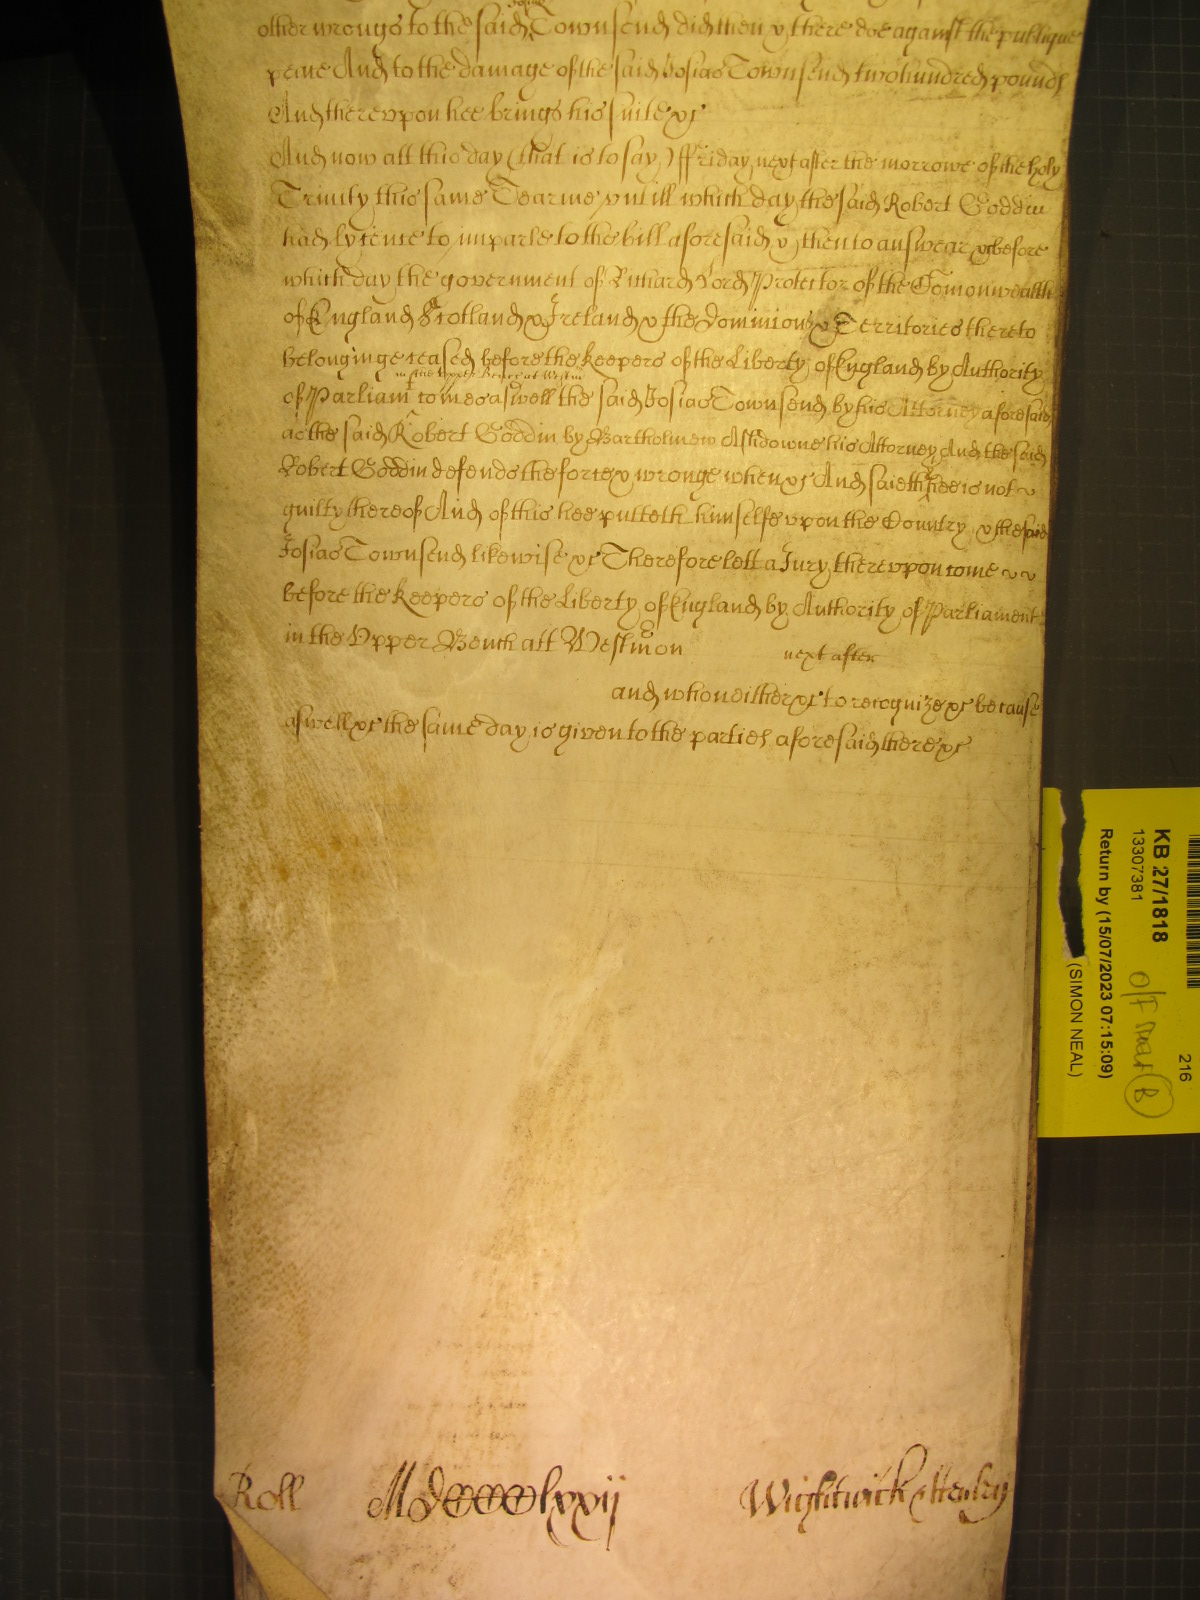 Josias
other wrongs to the said Townsend did then & there doe against the publique
peace And to the damage of the said Josias Townsend two hundred pounds
And thereupon hee brings his suite &c
And now att this day (that is to say,) ffriday next after the morrowe of the holy
Trinity this same Tearme vntill which day the said Robert Goddin
had lycence to imparle to the bill aforesaid & then to answear &c before
which day the government of Richard Lord Protector of the Comonwealth
of England Scotland & Ireland & the Dominions & Territories thereto
belonginge ceased before the Keepers of the Liberty of England by Authority
in the vpper Bench at Westm
of Parliamt comes aswell the said Josias Townsend by his Attorney aforesaid
as the said Robert Goddin by Bartholmew Ashdowne his Attorney And the said
Robert Goddin defends the force & wronge when &c And saieth hee is not
guilty thereof And of this hee putteth himselfe vpon the Country & the said
Josias Townsend likewise &c Therefore lett a Jury therevpon come
before the Keepers of the Liberty of England by Authority of Parliament
in the Vpper Bench att Westmon
next after
and who neither &c to recognize &c because
aswell &c the same day is given to the parties aforesaid there &c
Roll Mdcccclxxij Wightwick & Henley
KB 27/1818
13307381
Return by (15/07/2023 07:15:09)
(SIMON NEAL)
216